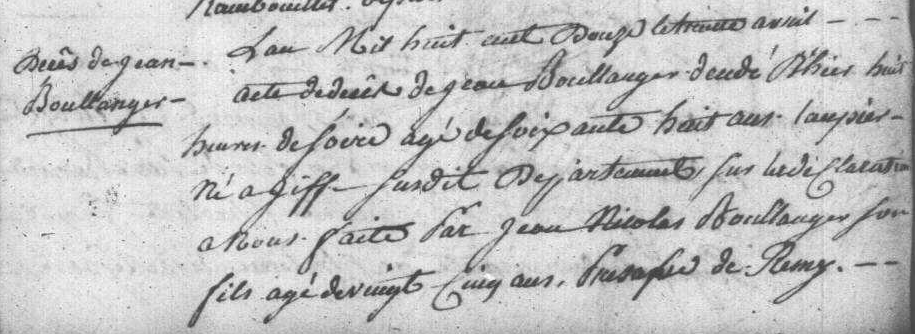 Rambouillet.
Décès de jean
Boullanger
L'an Mil huit cent Douze le trente avril
acte de decès de jean Boullanger décédé hier huit
heures de soire agé de soixante huit ans
Né a Giff susdit Departement, sur la déclaration
a Nous faite Par Jean Nicolas Boullanger son
fils agé de vingt Cinq ans, de Remy.